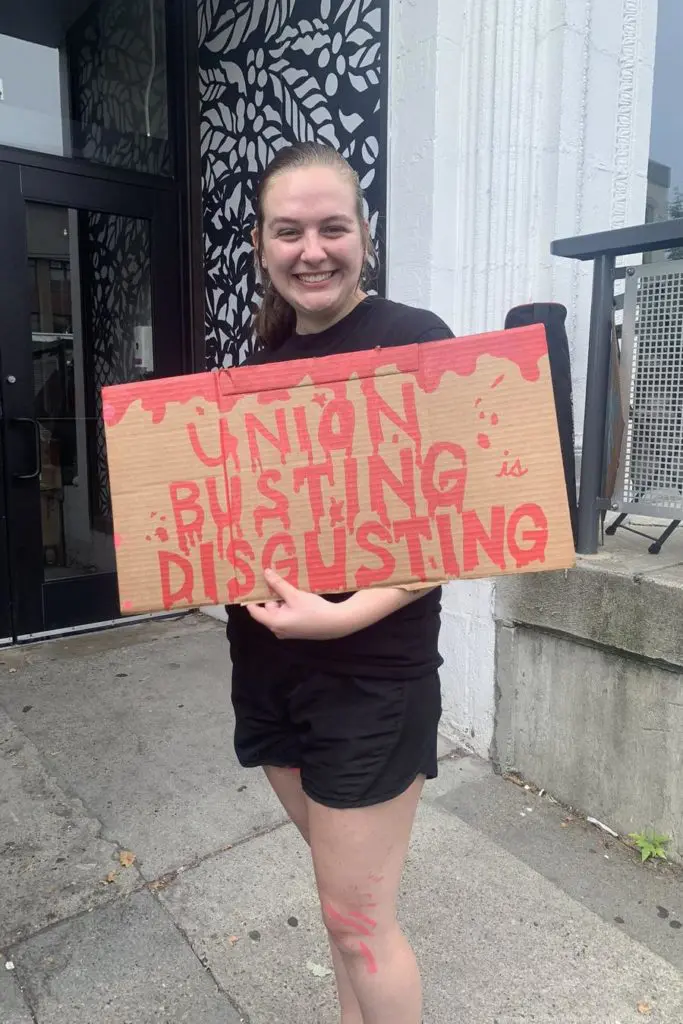 UNION
BUSTING is
DISGUSTING